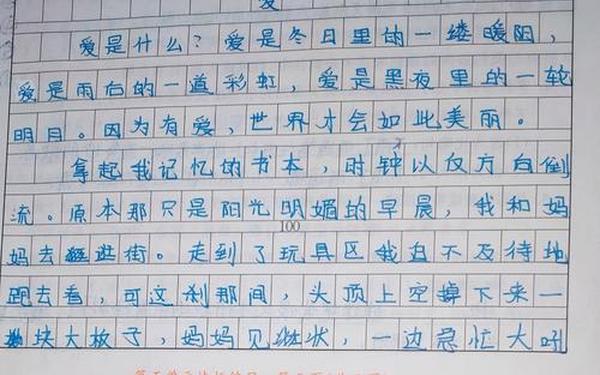 爱
爱是什么?爱是冬日里的一缕暖阳,
爱是雨后的一道彩虹,爱是黑夜里的一轮
明月。因为有爱,世界才会如此美丽。
拿起我记忆的书本,时钟以仅方向倒
流。原本那只是阳光明媚的早晨,我和妈
100
妈去逛街。走到了玩具区我白不及待地
跑去看,可这刹那间,头顶上空掉下来一
块大板子,妈妈见状,一边急忙大吼